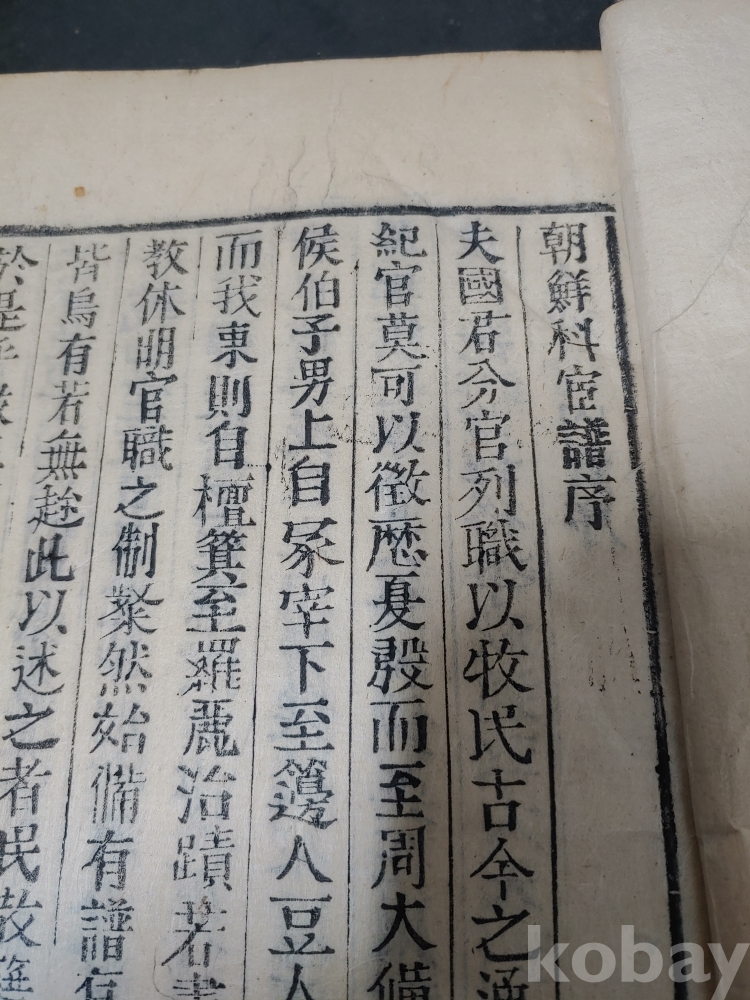 朝鮮科宦譜序
夫國君分官列職以牧民古今之通
紀官莫可以徵歷夏殷而至周大備
侯伯子男上自冢宰下至籩人豆人
而我東則自檀箕至羅麗治蹟若
教休明官職之制粲然始備有譜
皆烏有若無趁此以述之者民
於是乎
kobay